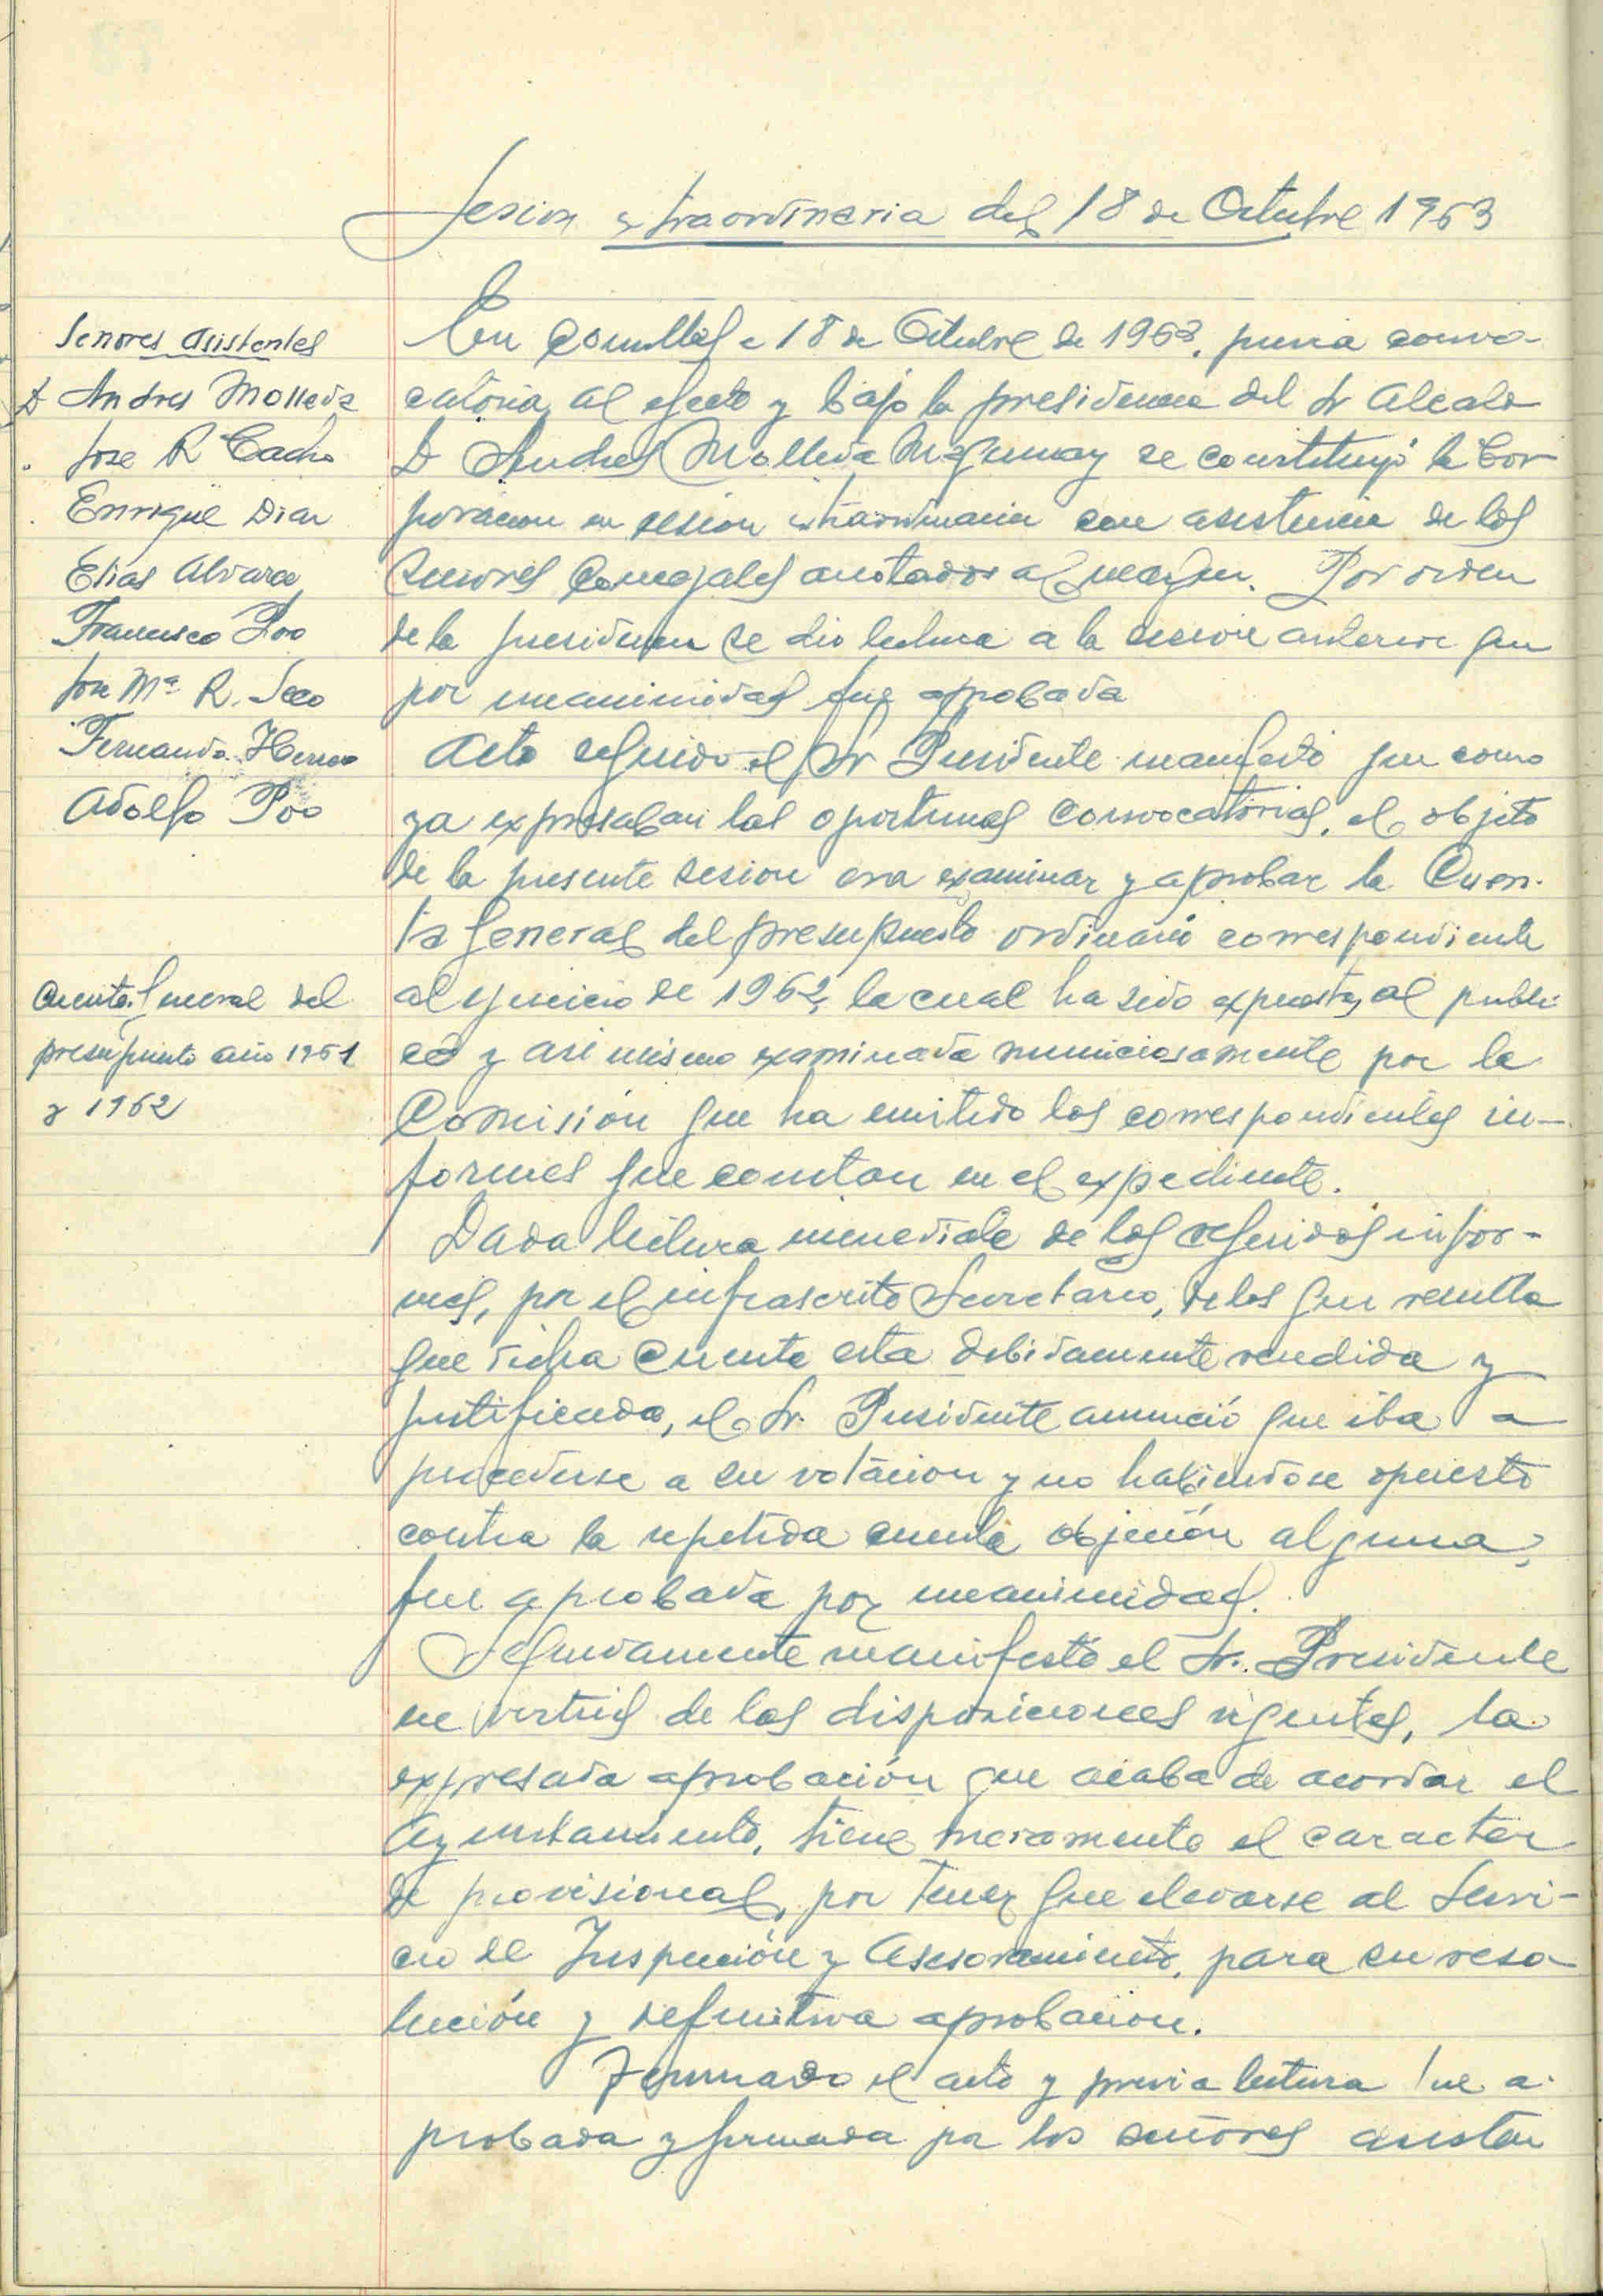 Sesion extraordinaria del 18 de Octubre 1963
Señores asistentes
D Andres Molleda
" Jose R Cacho
" Enrique Diaz
Elias Alvarez
Francisco Poo
Jose Mª R. Seco
Fernando Herrero
Adolfo Poo
En Comillas a 18 de Octubre de 1963, previa convo-
catoria al efecto y bajo la presidencia del Sr Alcalde
D Andres Molleda se constituyó la Cor
poracion en sesion extraordinaria con asistencia de los
Señores Concejales anotados al margen. Por orden
de la presidencia se dio lectura a la sesion anterior que
por unanimidad fue aprobada
Acto seguido el Sr Presidente manifestó que como
ya expresaban las oportunas convocatorias, el objeto
de la presente sesion era examinar y aprobar la Cuen-
ta General del presupuesto ordinario correspondiente
Cuenta General del
presupuesto año 1961
y 1962
al ejercicio de 1962, la cual ha sido expuesta al publi-
co y asi mismo examinada minuciosamente por la
Comisión que ha emitido los correspondientes in-
formes que constan en el expediente.
Dada lectura inmediata de los referidos infor-
mes, por el infrascrito Secretario, de los que resulta
que dicha cuenta esta debidamente rendida y
justificada, el Sr. Presidente anunció que iba a
procederse a su votacion y no habiendose opuesto
contra la repetida cuenta objeción alguna,
fue aprobada por unanimidad.
Seguidamente manifestó el Sr. Presidente
en virtud de las disposiciones vigentes, la
expresada aprobación que acaba de acordar el
Ayuntamiento, tiene meramente el caracter
de provisional, por tener que elevarse al Servi-
cio de Inspección y Asesoramiento, para su reso-
lución y definitiva aprobacion.
Terminado el acto y previa lectura fue a-
probada y firmada por los señores asisten